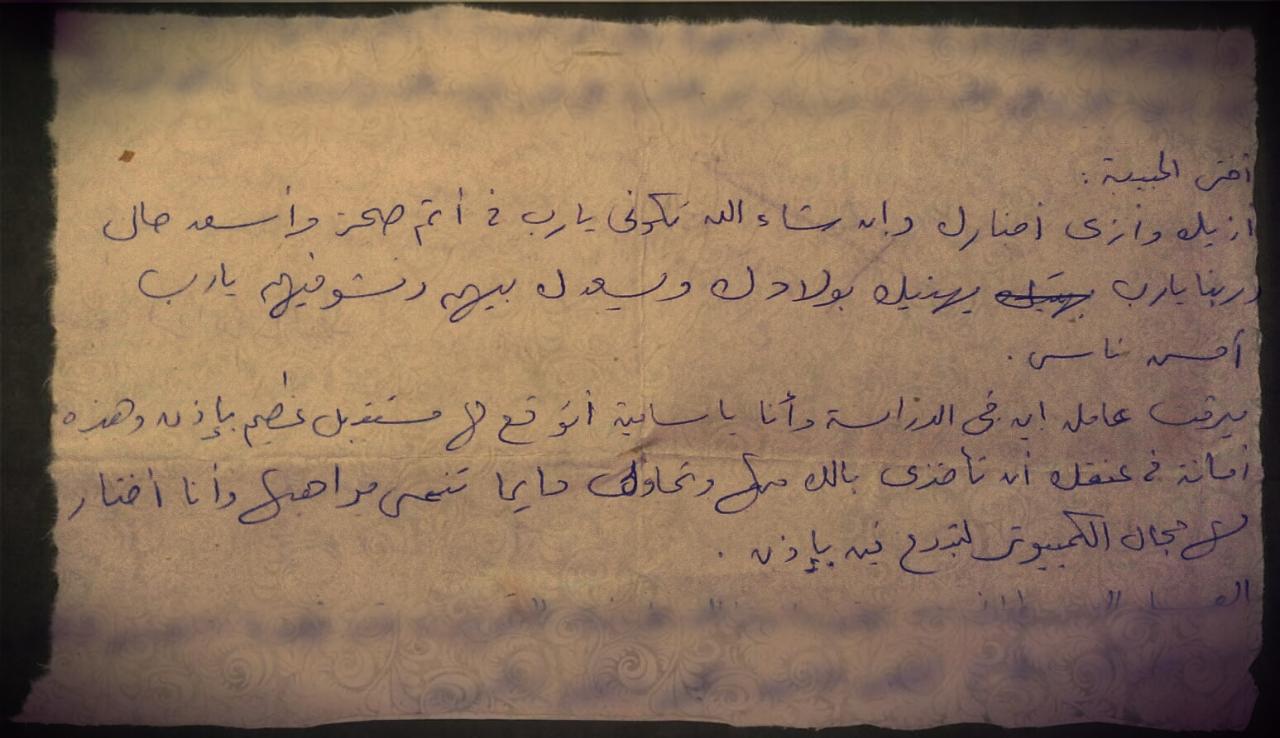 أختى الحبيبة :
ازيك وأزى أخبارك وإن شاء الله تكونى يارب فى أتم صحة وأسعد حال
وربنا يارب يهنيك بولادك ويسعدك بيهم وتشوفيهم يارب
أحسن ناس .
ميرفت عامله ايه فى الدراسة وأنا يا سامية أتوقع لها مستقبل عظيم بإذن وهذه
أمانة فى عنقك أن تأخذى بالك منها وتحاولى دايما تنمى مواهبها وأنا أختار
لها مجال الكمبيوتر لتبدع فيه بإذن .